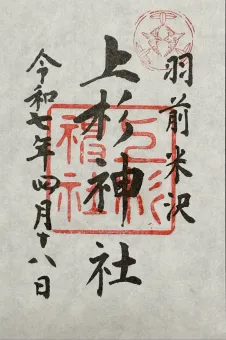 羽前米沢
上杉神社
令和七年四月十八日
上杉神社